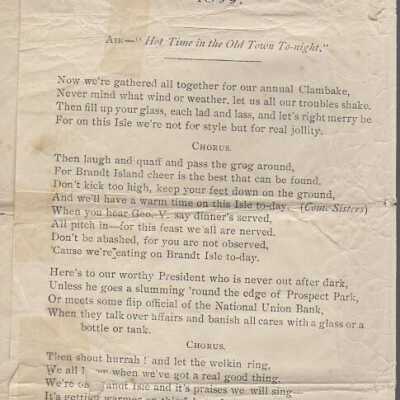 1899.
AIR—"Hot Time in the Old Town To-night."
Now we're gathered all together for our annual Clambake,
Never mind what wind or weather, let us all our troubles shake.
Then fill up your glass, each lad and lass, and let's right merry be
For on this Isle we're not for style but for real jollity.
CHORUS.
Then laugh and quaff and pass the grog around,
For Brandt Island cheer is the best that can be found.
Don't kick too high, keep your feet down on the ground,
And we'll have a warm time on this Isle to-day. (Com. Sisters)
When you hear Geo. V. say dinner's served,
All pitch in—for this feast we all are nerved.
Don't be abashed, for you are not observed,
'Cause we're eating on Brandt Isle to-day.
Here's to our worthy President who is never out after dark,
Unless he goes a slumming 'round the edge of Prospect Park,
Or meets some flip official of the National Union Bank,
When they talk over affairs and banish all cares with a glass or a
bottle or tank.
CHORUS.
Then shout hurrah! and let the welkin ring,
We all when we've got a real good thing,
We're on Isle and it's praises we will sing—
It's getting warmer on